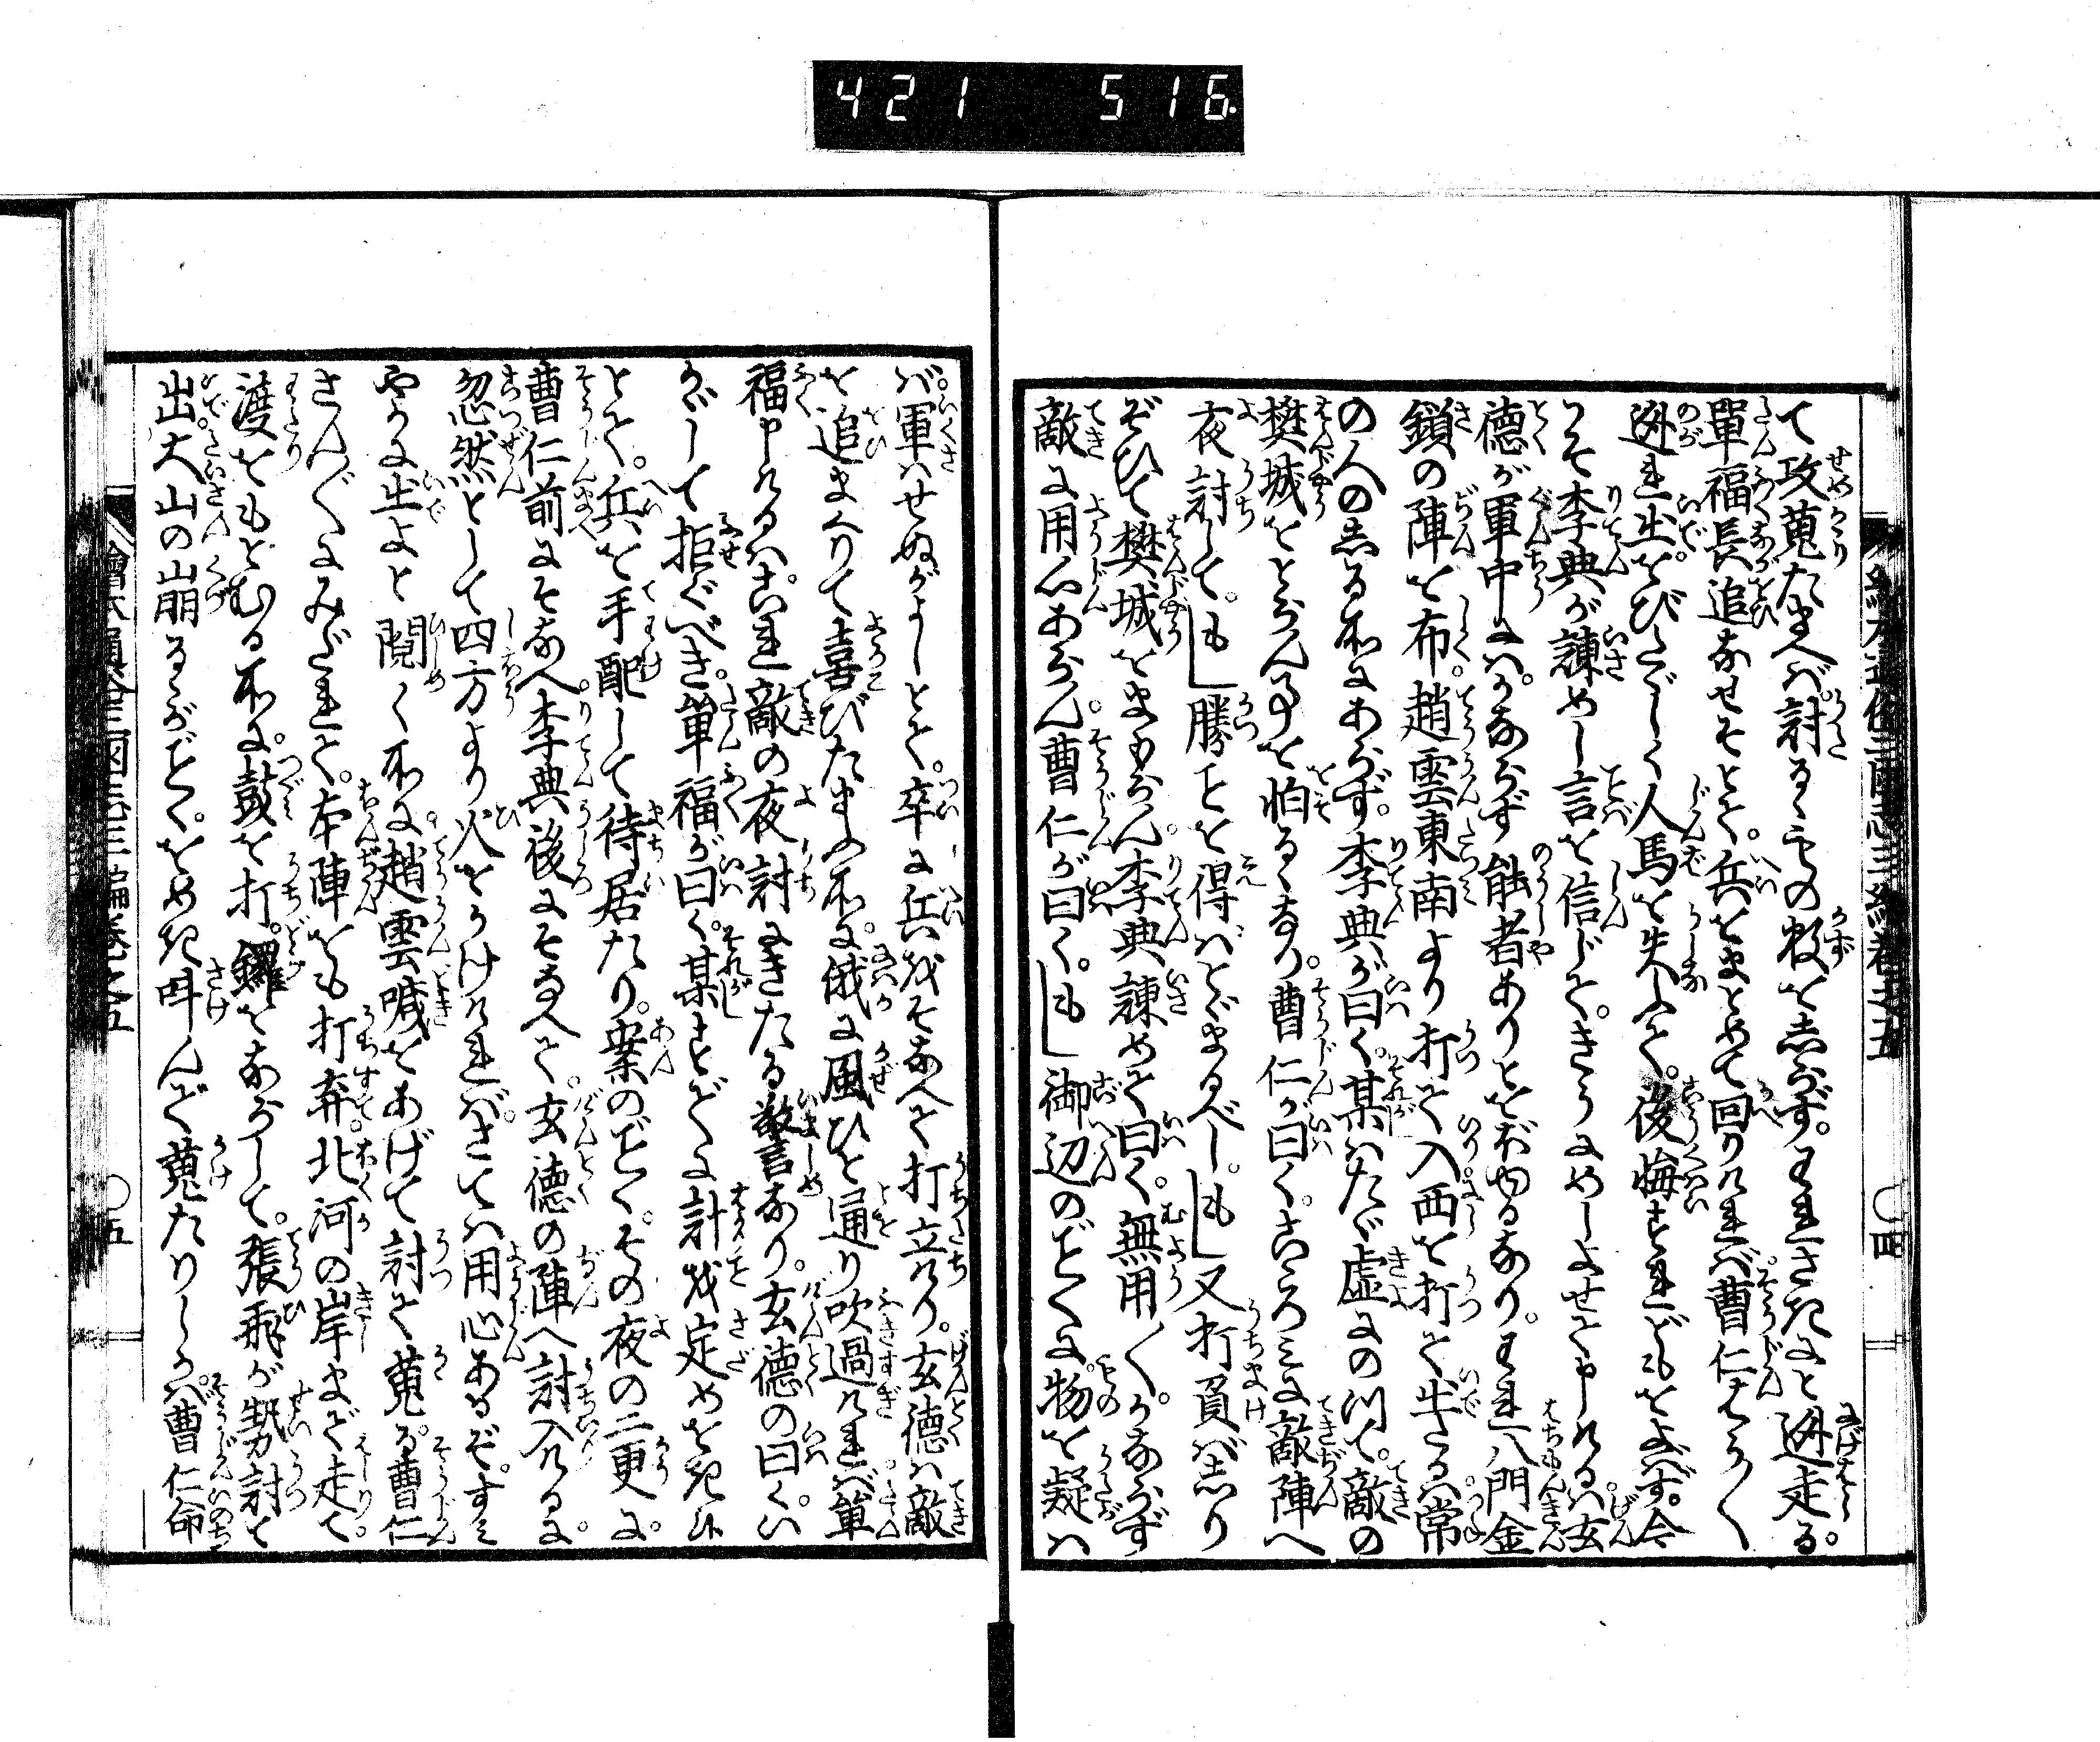 421 516
て攻蒐たまへバ。討るゝもの数を志らず。われさきにと迯走る。
單福長追なせそとて。兵をまとめて回りければ曹仁はう〳〵
迯れ出。おびたゞしく人馬を失ふて。後悔すれどもをよばず。今
こそ李典が諌めし言を信じて。きうにめしよせて申しけるハ玄
德が軍中にハ。かならず能者ありとおぼゆるなり。われ八門金
鎖の陣を布。趙雲東南より打て入西を打て出たるハ常
の人の志る所にあらず。李典が曰く。某ハたゞ虚にのつて。敵の
樊城をとらん事を怕るゝなり。曹仁が曰く。こゝろミに敵陣へ
夜討して。もし勝ことを得バとゞまるべし。もし又打負バ志り
ぞひて樊城をまもらん。李典諌めて曰く。無用〳〵。かならず
敵に用心あらん。曹仁が曰く。もし御辺のごとくに。物を疑ハ
繪本通俗三國志三編卷之五 〇四
バ。軍ハせぬがよしとて。卒に兵をそなへて打立けり。玄德ハ敵
を追まくりて喜びたまふ所に。俄に風ひと通り吹過ければ。單
福申けるハ。これ敵の夜討にきたる警なり。玄德の曰く。い
かゞして拒ぐべき。單福が曰く。某すでに計を定めをきぬ
とて。兵を手配して待居たり。案のごとく。その夜の二更に。
曹仁前にそなへ。李典後にそなへて。玄德の陣へ討入けるに。
忽然として四方より火をかけければ。さてハ用心あるぞ。すミ
やかに出よと鬩く所に。趙雲喊をあげて討て蒐る。曹仁
さん〴〵にみだれて。本陣をも打弃。北河の岸まで走て。
渡をもとむる所に。鼓を打。鑼をならして。張飛が勢討て
出。大山の崩るゝがごとく。をめき叫んで蒐たりしかバ。曹仁命
繪本通俗三國志三編卷之五 〇五